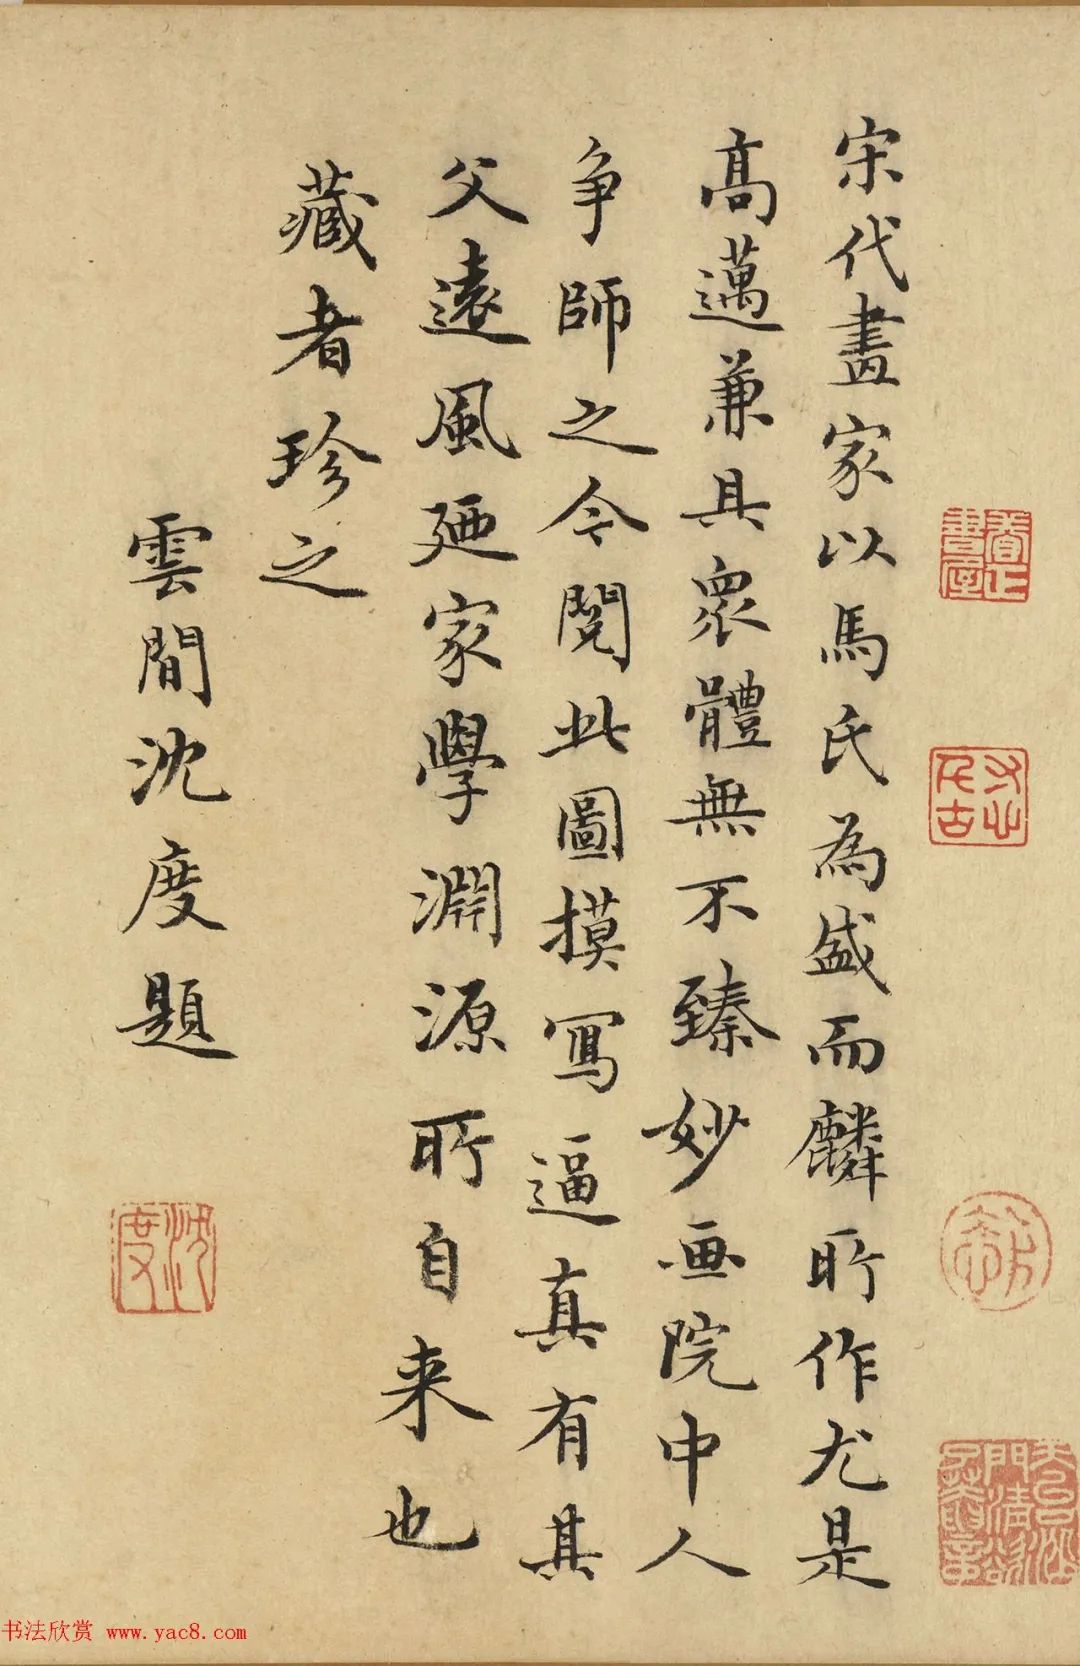 宋代畫家以馬氏為盛而麟所作尤是
高邁兼具衆體無不臻妙画院中人
爭師之今閱此圖摸寫逼真有其
父遠風廼家學淵源所自来也
藏者珍之
雲間沈度題
沈度
书法欣赏 www.yac8.com